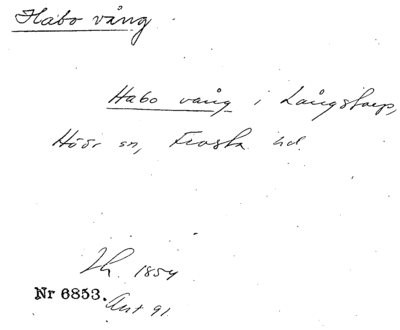 Habo vång
Habo vång i Långstorp,
Höör sn, Frosta hd.
Lh. 1854
Nr 6853. Ant 91.